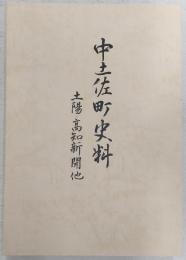 中土佐町史料
土陽 高知新聞他